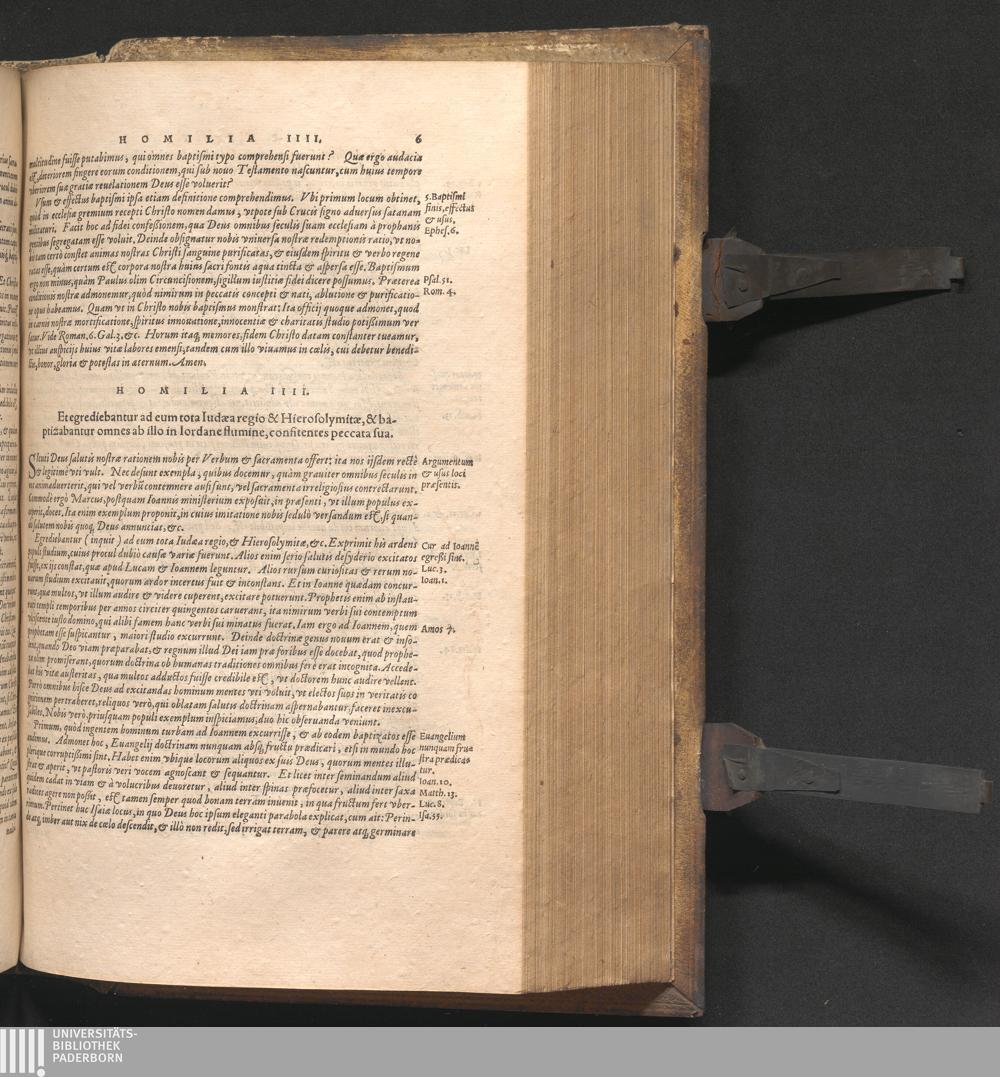 HOMILIA IIII. 6
multitudine fuisse putabimus, qui omnes baptismi typo comprehensi fuerunt? Quæ ergò audacia
est, deteriorem fingere eorum conditionem, qui sub nouo Testamento nascuntur, cum huius tempore
vberiorem suæ gratiæ reuelationem Deus esse voluerit?
Vsum & effectus baptismi ipsa etiam definitione comprehendimus. Vbi primum locum obtinet,
quòd in ecclesiæ gremium recepti Christo nomen damus, vtpote sub Crucis signo aduersus satanam
militaturi. Facit hoc ad fidei confessionem, qua Deus omnibus seculis suam ecclesiam à prophanis
gentibus segregatam esse voluit. Deinde obsignatur nobis vniuersa nostræ redemptionis ratio, vt no-
bis tam certò constet animas nostras Christi sanguine purificatas, & eiusdem spiritu & verbo regene
ratas esse, quàm certum est corpora nostra huius sacri fontis aqua tincta & aspersa esse. Baptismum
ergo non minus, quàm Paulus olim Circuncisionem, sigillum iustitiæ fidei dicere possumus. Præterea
conditionis nostræ admonemur, quòd nimirum in peccatis concepti & nati, ablutione & purificatio-
ne opus habeamus. Quam vt in Christo nobis baptismus monstrat: Ita officij quoque admonet, quod
in carnis nostræ mortificatione, spiritus innouatione, innocentiæ & charitatis studio potissimum ver
satur. Vide Roman. 6. Gal. 3. &c. Horum itaq; memores, fidem Christo datam constanter tueamur,
vt illius auspicijs huius vitæ labores emensi, tandem cum illo viuamus in cœlis, cui debetur benedi-
ctio, honor, gloria & potestas in æternum. Amen.
5. Baptismi
finis, effectus
& usus.
Ephes. 6.
Psal. 51.
Rom. 4.
HOMILIA IIII.
Et egrediebantur ad eum tota Iudæa regio & Hierosolymitæ, & ba-
ptizabantur omnes ab illo in Iordane flumine, confitentes peccata sua.
Sicuti Deus salutis nostræ rationem nobis per Verbum & sacramenta offert: ita nos ijsdem rectè
& legitimè vti vult. Nec desunt exempla, quibus docemur, quàm grauiter omnibus seculis in
eos animaduerterit, qui vel verbũ contemnere ausi sunt, vel sacramenta irreligiosius contrectarunt.
Commodè ergò Marcus, postquam Ioannis ministerium exposuit, in præsenti, vt illum populus ex-
ceperit, docet. Ita enim exemplum proponit, in cuius imitatione nobis sedulò versandum est, si quan-
do salutem nobis quoq; Deus annunciat, &c.
Egrediebantur (inquit) ad eum tota Iudæa regio, & Hierosolymitæ, &c. Exprimit his ardens
populi studium, cuius procul dubiò causæ variæ fuerunt. Alios enim serio salutis desyderio excitatos
fuisse, ex ijs constat, quæ apud Lucam & Ioannem leguntur. Alios rursum curiositas & rerum no-
uarum studium excitauit, quorum ardor incertus fuit & inconstans. Et in Ioanne quædam concur-
runt, quæ multos, vt illum audire & videre cuperent, excitare potuerunt. Prophetis enim ab instau-
rati templi temporibus per annos circiter quingentos caruerant, ita nimirum verbi sui contemptum
vlciscente iusto domino, qui alibi famem hanc verbi sui minatus fuerat. Iam ergo ad Ioannem, quem
prophetam esse suspicantur, maiori studio excurrunt. Deinde doctrinæ genus nouum erat & inso-
lens, quando Deo viam præparabat, & regnum illud Dei iam præ foribus esse docebat, quod prophe-
tæ olim promiserant, quorum doctrina ob humanas traditiones omnibus ferè erat incognita. Accede-
bat his vitæ austeritas, qua multos adductos fuisse credibile est, vt doctorem hunc audire vellent.
Porrò omnibus hisce Deus ad excitandas hominum mentes vti voluit, vt electos suos in veritatis co
gnitionem pertraheret, reliquos verò, qui oblatam salutis doctrinam aspernabantur, faceret inexcu-
sabiles. Nobis verò, priusquam populi exemplum inspiciamus, duo hic obseruanda veniunt.
Primum, quòd ingentem hominum turbam ad Ioannem excurrisse, & ab eodem baptizatos esse
audimus. Admonet hoc, Euangelij doctrinam nunquam absq; fructu prædicari, etsi in mundo hoc
pleraque corruptissimi sint. Habet enim vbique locorum aliquos ex suis Deus, quorum mentes illu-
strat & aperit, vt pastoris veri vocem agnoscant & sequantur. Et licet inter seminandum aliud
quidem cadat in viam & à volucribus deuoretur, aliud inter spinas præfocetur, aliud inter saxa
radices agere non possit, est tamen semper quod bonam terram inuenit, in qua fructum fert vber-
rimum. Pertinet huc Isaiæ locus, in quo Deus hoc ipsum eleganti parabola explicat, cum ait: Perin-
de atq; imber aut nix de cœlo descendit, & illò non redit, sed irrigat terram, & parere atq; germinare
Argumentum
& usus loci
præsentis.
Cur ad Ioannẽ
egressi sint.
Luc. 3.
Ioan. 1.
Amos 7.
Euangelium
nunquam fru=
stra prædica=
tur.
Ioan. 10.
Matth. 13.
Luc. 8.
Isa. 55.
UNIVERSITÄTS-
BIBLIOTHEK
PADERBORN